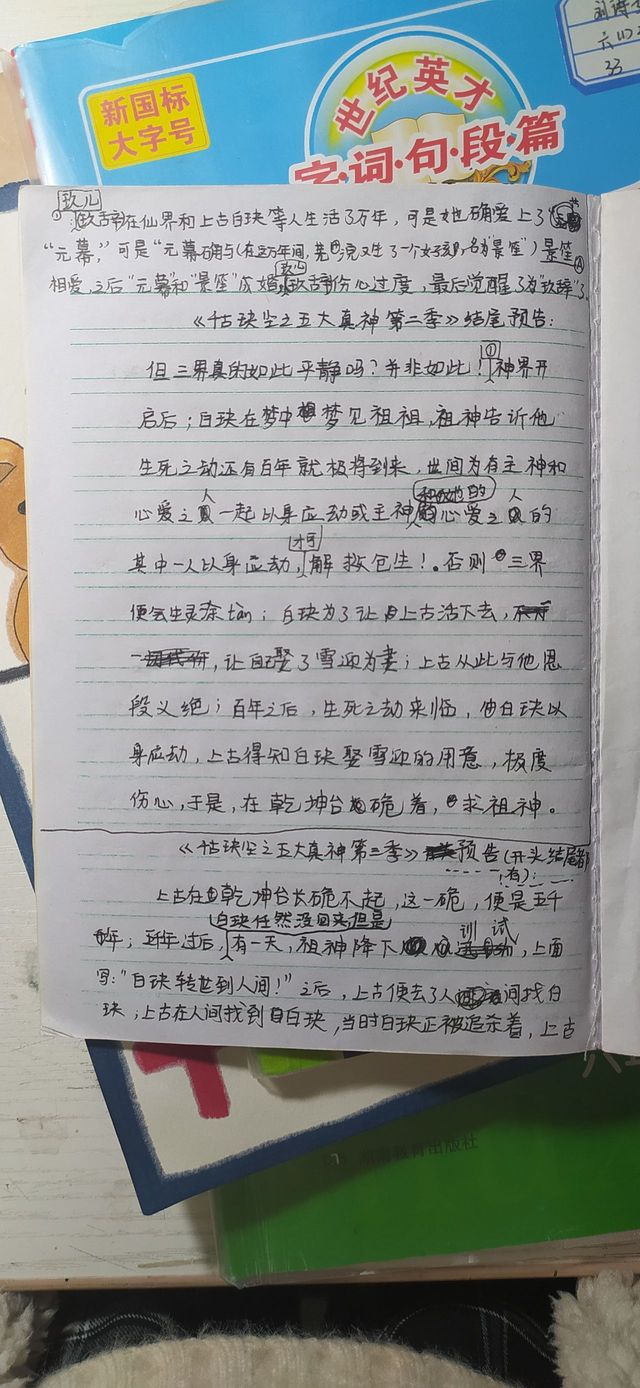 刘
六
33
新国标
大字号
世纪英才
字·词·句·段·篇
玖儿
在仙界和上古白玦等人生活了万年，可是她确爱上了
“元幕，”可是“元幕确与(在这万年间，又生了一个女孩，名为“景笙”)景笙
相爱，之后“元幕”和“景笙”成婚，伤心过度，最后觉醒了为“玖辞”了。
《千古玦尘之五大真神第二季》结尾预告：
但三界真的如此平静吗？并非如此！①神界开
启后；白玦在梦中梦见祖祖，祖神告诉他
生死之动还有百年就极将到来，世间为有主神和
心爱之人一起以身应动或主神和她的心爱之人的
其中一人以身应动，才可解救仓生！。否则三界
便会生灵荼tàn；白玦为了让上古活下去，
，让自己娶了雪迎为妻；上古从此与他恩
段义绝；百年之后，生死之劫来临，白玦以
身应劫，上古得知白玦娶雪迎的用意，极度
伤心，于是，在乾坤台跪着，求祖神。
《千古玦尘之五大真神第三季》预告(开头结尾都
有)：
上古在乾坤台长跪不起，这一跪，便是五千
白玦任然没回来但是
年；五千年过后，有一天，祖神降下训试，上面
写：“白玦转世到人间！”之后，上古便去了人间找白
玦，上古在人间找到白玦，当时白玦正被追杀着，上古
教育出版社